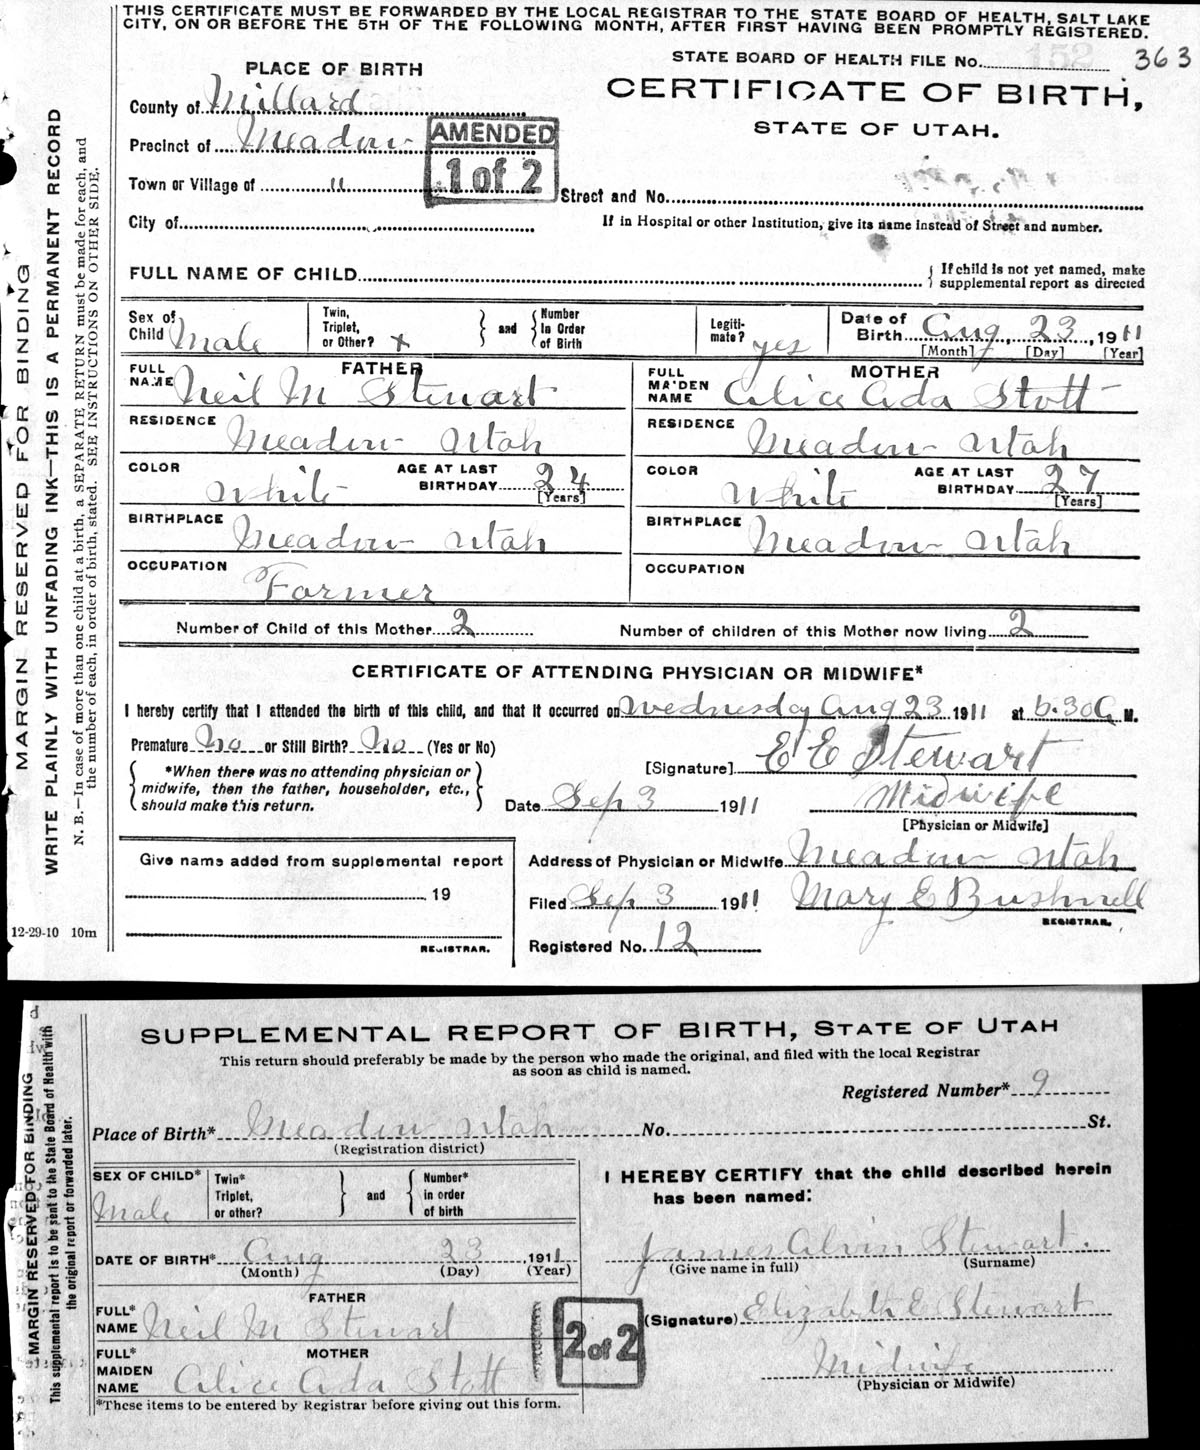 THIS CERTIFICATE MUST BE FORWARDED BY THE LOCAL REGISTRAR TO THE STATE BOARD OF HEALTH, SALT LAKE
CITY, ON OR BEFORE THE 5TH OF THE FOLLOWING MONTH, AFTER FIRST HAVING BEEN PROMPTLY REGISTERED.
STATE BOARD OF HEALTH FILE No. 152 363
PLACE OF BIRTH
CERTIFICATE OF BIRTH,
STATE OF UTAH.
County of Millard
Precinct of Meadow
AMENDED
1 of 2
Town or Village of "
Street and No.
City of
If in Hospital or other Institution, give its name instead of Street and number.
FULL NAME OF CHILD
If child is not yet named, make
supplemental report as directed
Sex of Child Male
Twin, Triplet, or Other? x
and
Number In Order of Birth
Legiti- mate? yes
Date of Birth Aug. 23, 1911
[Month] [Day] [Year]
FATHER
FULL NAME Neil M Stewart
RESIDENCE Meadow Utah
COLOR White
AGE AT LAST BIRTHDAY 24
[Years]
BIRTHPLACE Meadow Utah
OCCUPATION Farmer
MOTHER
FULL MAIDEN NAME Alice Ada Stott
RESIDENCE Meadow Utah
COLOR White
AGE AT LAST BIRTHDAY 27
[Years]
BIRTHPLACE Meadow Utah
OCCUPATION
Number of Child of this Mother 2
Number of children of this Mother now living 2
CERTIFICATE OF ATTENDING PHYSICIAN OR MIDWIFE*
I hereby certify that I attended the birth of this child, and that it occurred on Wednesday Aug 23 1911 at 6.30 A M.
Premature No or Still Birth? No (Yes or No)
*When there was no attending physician or
midwife, then the father, householder, etc.,
should make this return.
[Signature] E E Stewart
Date Sep 3 1911
Midwife
[Physician or Midwife]
Give name added from supplemental report
19
REGISTRAR.
Address of Physician or Midwife Meadow Utah
Filed Sep 3 1911 Mary E Bushnell
REGISTRAR.
Registered No. 12
12-29-10 10m
MARGIN RESERVED FOR BINDING
WRITE PLAINLY WITH UNFADING INK—THIS IS A PERMANENT RECORD
N. B.—In case of more than one child at a birth, a SEPARATE RETURN must be made for each, and
the number of each, in order of birth, stated. SEE INSTRUCTIONS ON OTHER SIDE.
SUPPLEMENTAL REPORT OF BIRTH, STATE OF UTAH
This return should preferably be made by the person who made the original, and filed with the local Registrar
as soon as child is named.
Registered Number* 9
Place of Birth* Meadow Utah No. St.
(Registration district)
SEX OF CHILD* Male
Twin* Triplet, or other?
and
Number* in order of birth
DATE OF BIRTH* Aug 23, 1911
(Month) (Day) (Year)
FATHER
FULL* NAME Neil M Stewart
MOTHER
FULL* MAIDEN NAME Alice Ada Stott
*These items to be entered by Registrar before giving out this form.
I HEREBY CERTIFY that the child described herein
has been named:
James Alvin Stewart.
(Give name in full) (Surname)
2 of 2
(Signature) Elizabeth E Stewart
Midwife
(Physician or Midwife)
MARGIN RESERVED FOR BINDING
This supplemental report is to be sent to the State Board of Health with
the original report or forwarded later.